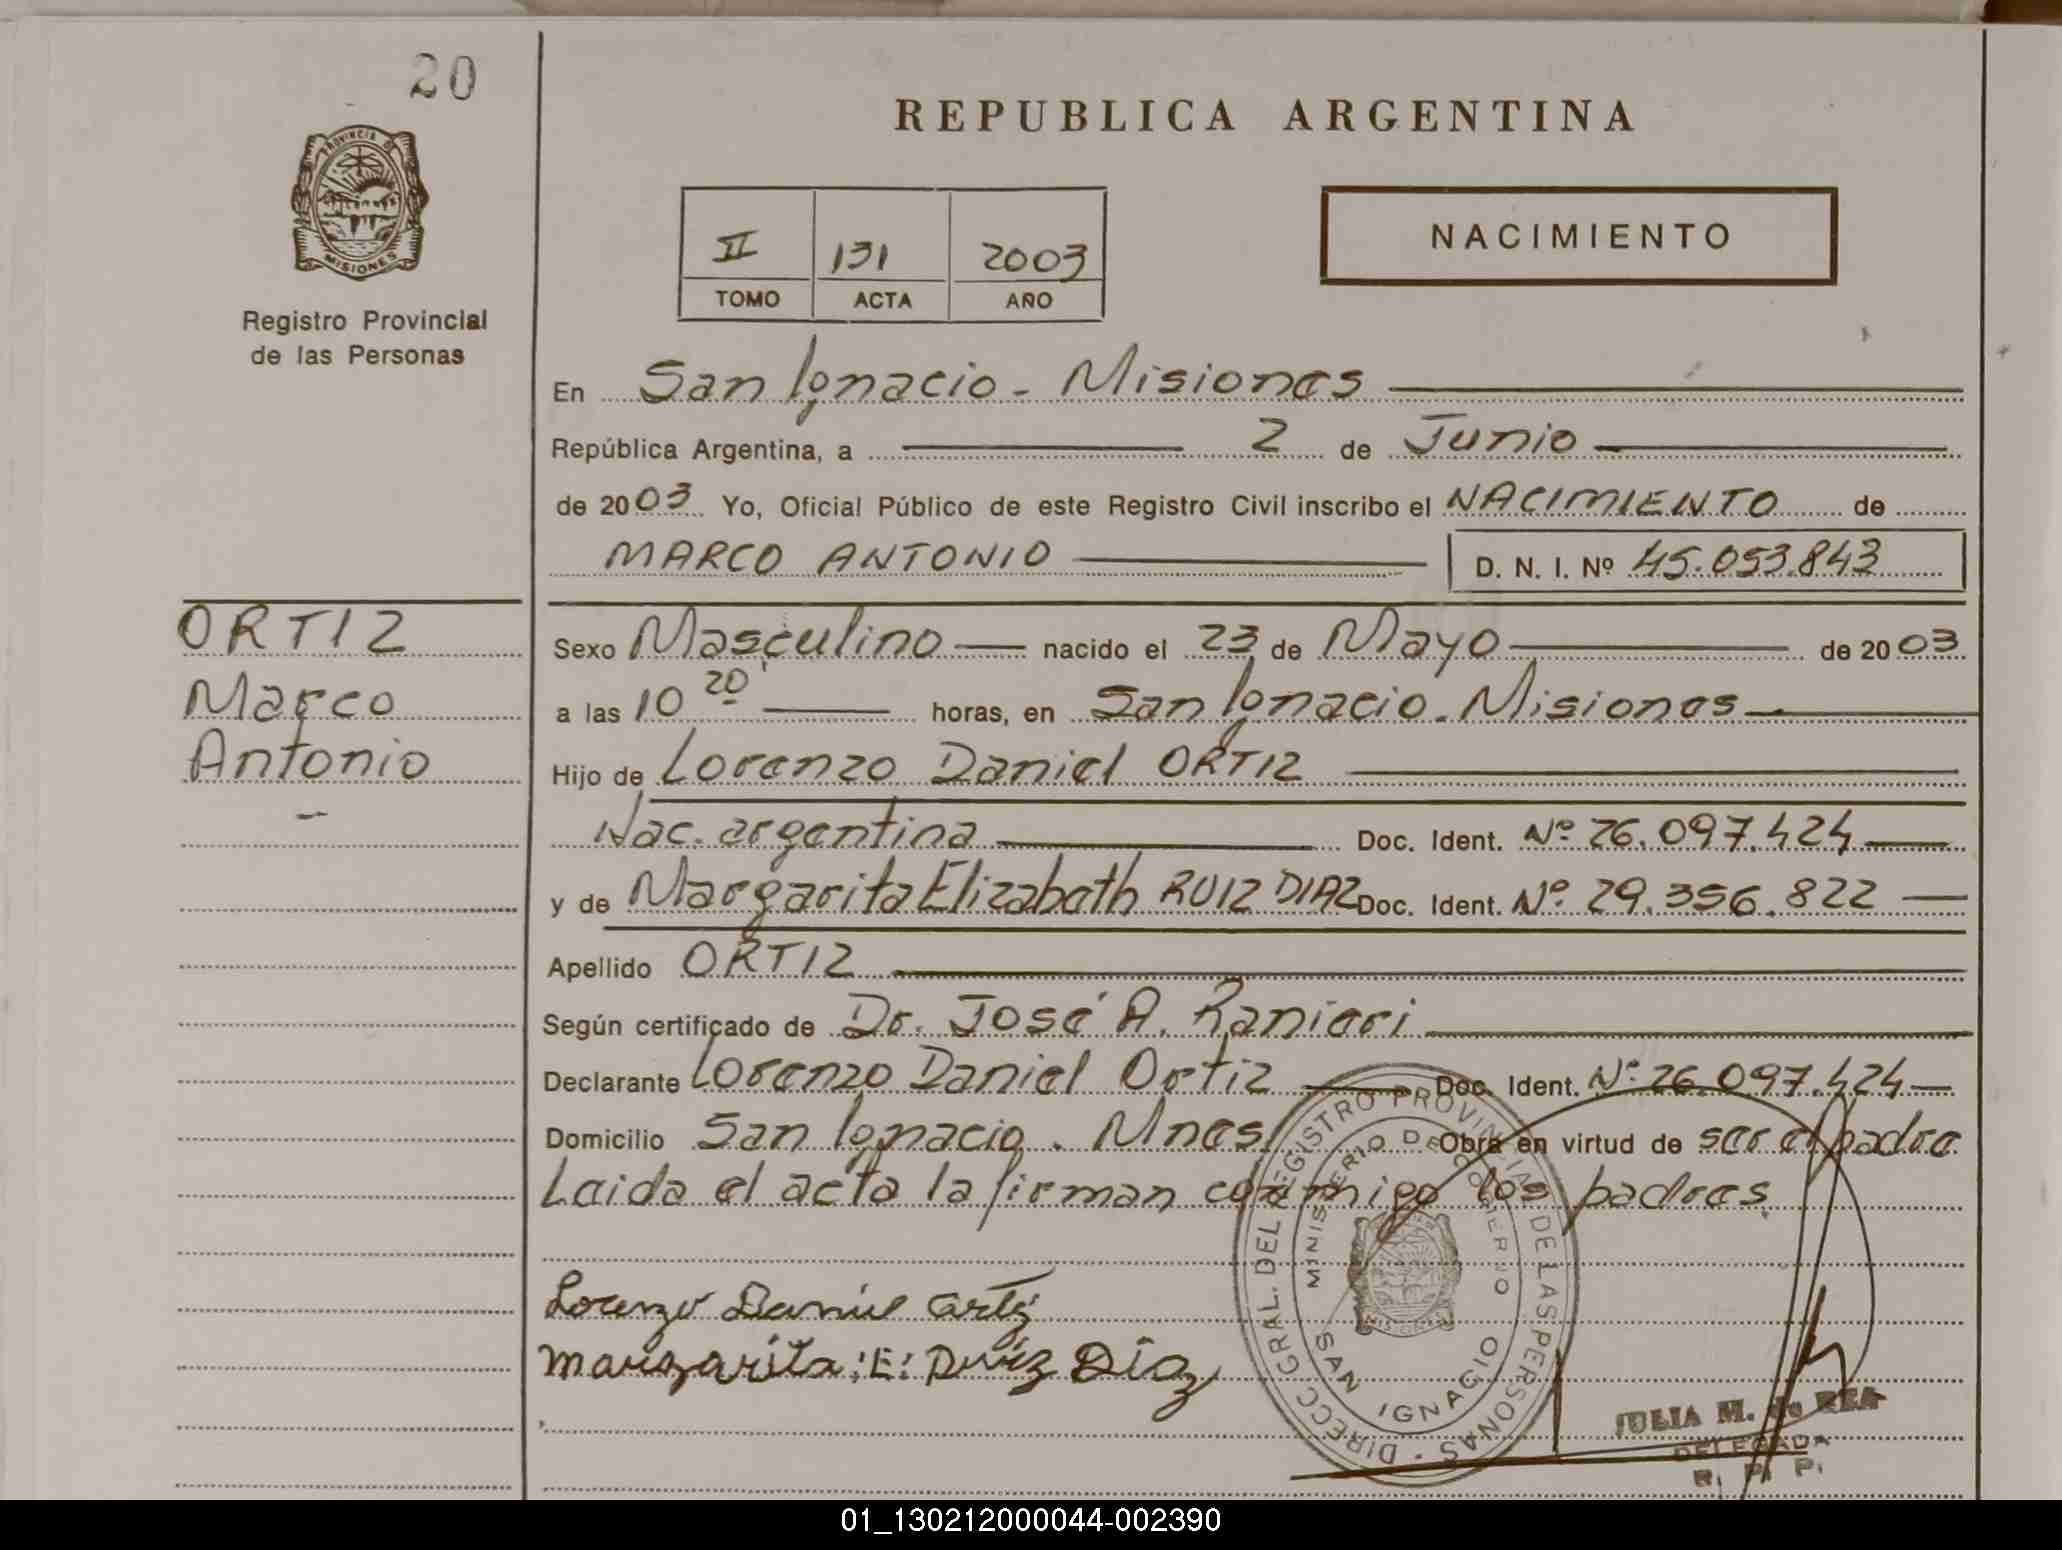 20
PROVINCIA DE
MISIONES
Registro Provincial
de las Personas
REPUBLICA ARGENTINA
II 131 2003
TOMO ACTA AÑO
NACIMIENTO
En San Ignacio - Misiones
República Argentina, a 2 de Junio
de 2003 Yo, Oficial Público de este Registro Civil inscribo el NACIMIENTO de
MARCO ANTONIO D. N. I. Nº 45.053.843
ORTIZ
Marco
Antonio
Sexo Masculino nacido el 23 de Mayo de 2003
a las 10 20 horas, en San Ignacio. Misiones
Hijo de Lorenzo Daniel ORTIZ
Nac. argentina Doc. Ident. Nº 26.097.424
y de Margarita Elizabeth RUIZ DIAZ Doc. Ident. Nº 29.356.822
Apellido ORTIZ
Según certificado de Dr. José A. Ranieri
Declarante Lorenzo Daniel Ortiz Doc. Ident. Nº 26.097.424
Domicilio San Ignacio. Mnes Obra en virtud de ser el padre
Leida el acta la firman conmigo los padres.
Lorenzo Daniel Ortiz
Margarita E. Ruiz Díaz
DIRECC GRAL. DEL REGISTRO PROVINCIAL DE LAS PERSONAS
MINISTERIO DE GOBIERNO
SAN IGNACIO
JULIA M. de REA
DELEGADA
R. P. P.
01_130212000044-002390